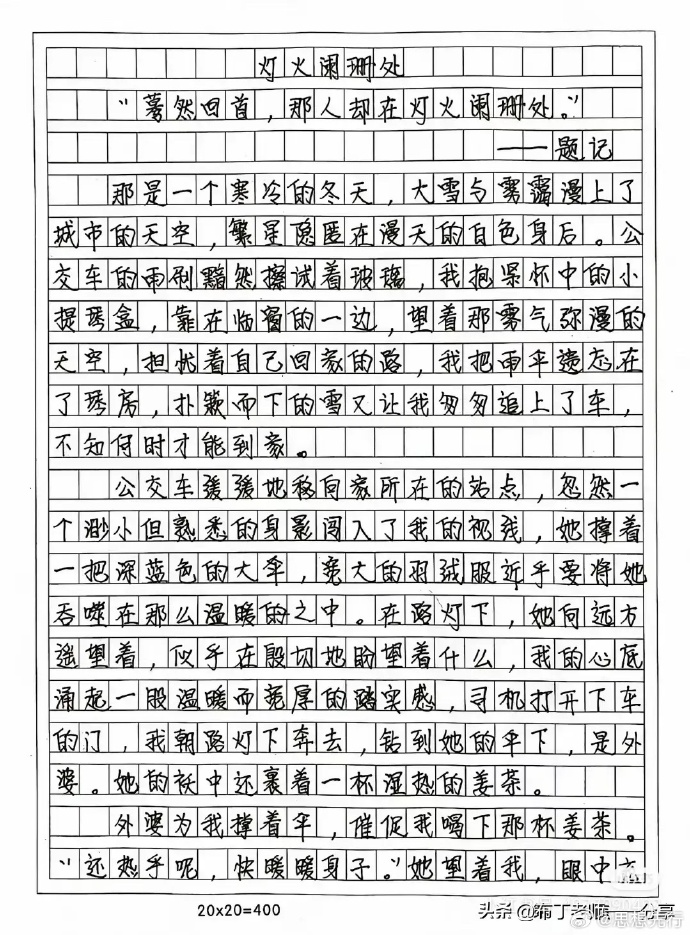 灯火阑珊处
“蓦然回首，那人却在灯火阑珊处。”
——题记
那是一个寒冷的冬天，大雪与雾霭漫上了
城市的天空，繁星隐匿在漫天的白色身后。公
交车的雨刷黯然擦试着玻璃，我抱紧怀中的小
提琴盒，靠在临窗的一边，望着那雾气弥漫的
天空，担忧着自己回家的路，我把雨伞遗忘在
了琴房，扑簌而下的雪又让我匆匆追上了车，
不知何时才能到家。
公交车缓缓地移向家所在的站点，忽然一
个渺小但熟悉的身影闯入了我的视线，她撑着
一把深蓝色的大伞，宽大的羽绒服近乎要将她
吞噬在那么温暖的之中。在路灯下，她向远方
遥望着，似乎在殷切地盼望着什么，我的心底
涌起一股温暖而宽厚的踏实感，司机打开下车
的门，我朝路灯下奔去，钻到她的伞下，是外
婆。她的袄中还裹着一杯湿热的姜茶。
外婆为我撑着伞，催促我喝下那杯姜茶。
“还热乎呢，快暖暖身子。”她望着我，眼中
20x20=400
头条@布丁老师 分享
@思想先行